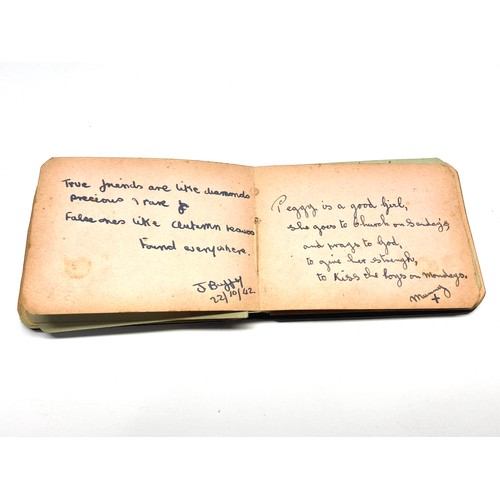 True friends are like diamonds
precious & rare
False ones like Autumn leaves
Found everywhere.
J Buffy
22/10/42
Peggy is a good girl,
she goes to Church on Sundays
and prays to God,
to give her strength,
to Kiss the boys on Mondays.